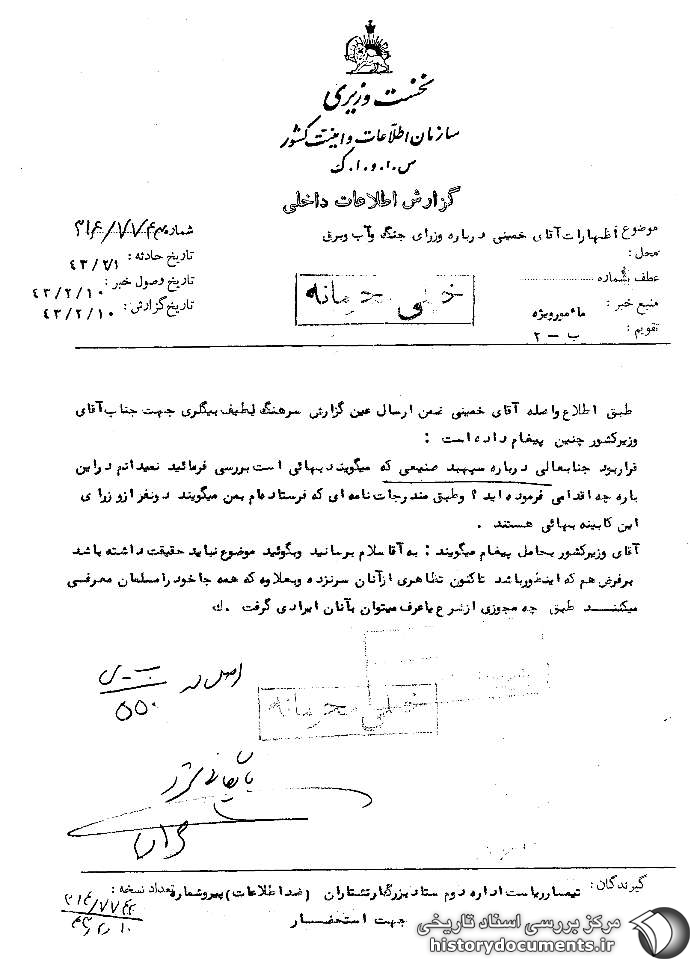 نخست وزیری
سازمان اطلاعات و امنیت کشور
س.ا.و.ا.ک
گزارش اطلاعات داخلی
موضوع اظهارات آقای خمینی درباره وزرای جنگ وآب وبرق
محل :
عطف بشماره
منبع خبر : مأمور ویژه
تقویم : ب - ۲
شماره ۳۱۶/۷۷۴
تاریخ حادثه : ۴۳/۲/۱
تاریخ وصول خبر : ۴۳/۲/۱۰
تاریخ گزارش : ۴۳/۲/۱۰
خیلی محرمانه
طبق اطلاع واصله آقای خمینی ضمن ارسال عین گزارش سرهنگ لطیف بیگلری جهت جناب آقای
وزیرکشور چنین پیغام داده است :
قراربود جنابعالی درباره سپهبد صنیعی که میگویند بهائی است بررسی فرمائید نمیدانم دراین
باره چه اقدامی فرموده اید ؟ وطبق مندرجات نامه ای که فرستاده ام بمن میگویند دونفر ازوزرای
این کابینه بهائی هستند .
آقای وزیرکشور بحامل پیغام میگویند : به آقا سلام برسانید وبگوئید موضوع نباید حقیقت داشته باشد
برفرض هم که اینطورباشد تاکنون تظاهری ازآنان سرنزده وبعلاوه که همه جا خود رامسلمان معرفی
میکنند طبق چه مجوزی ازشرع یاعرف میتوان بآنان ایرادی گرفت . ك
اصل در
۵۵۰
خیلی محرمانه
بایگانی شود
گیرندگان : تیمسار ریاست اداره دوم ستاد بزرگ ارتشتاران (ضد اطلاعات) پیرو شماره
تعداد نسخه :
جهت استحضار
مرکز بررسی اسناد تاریخی
historydocuments.ir